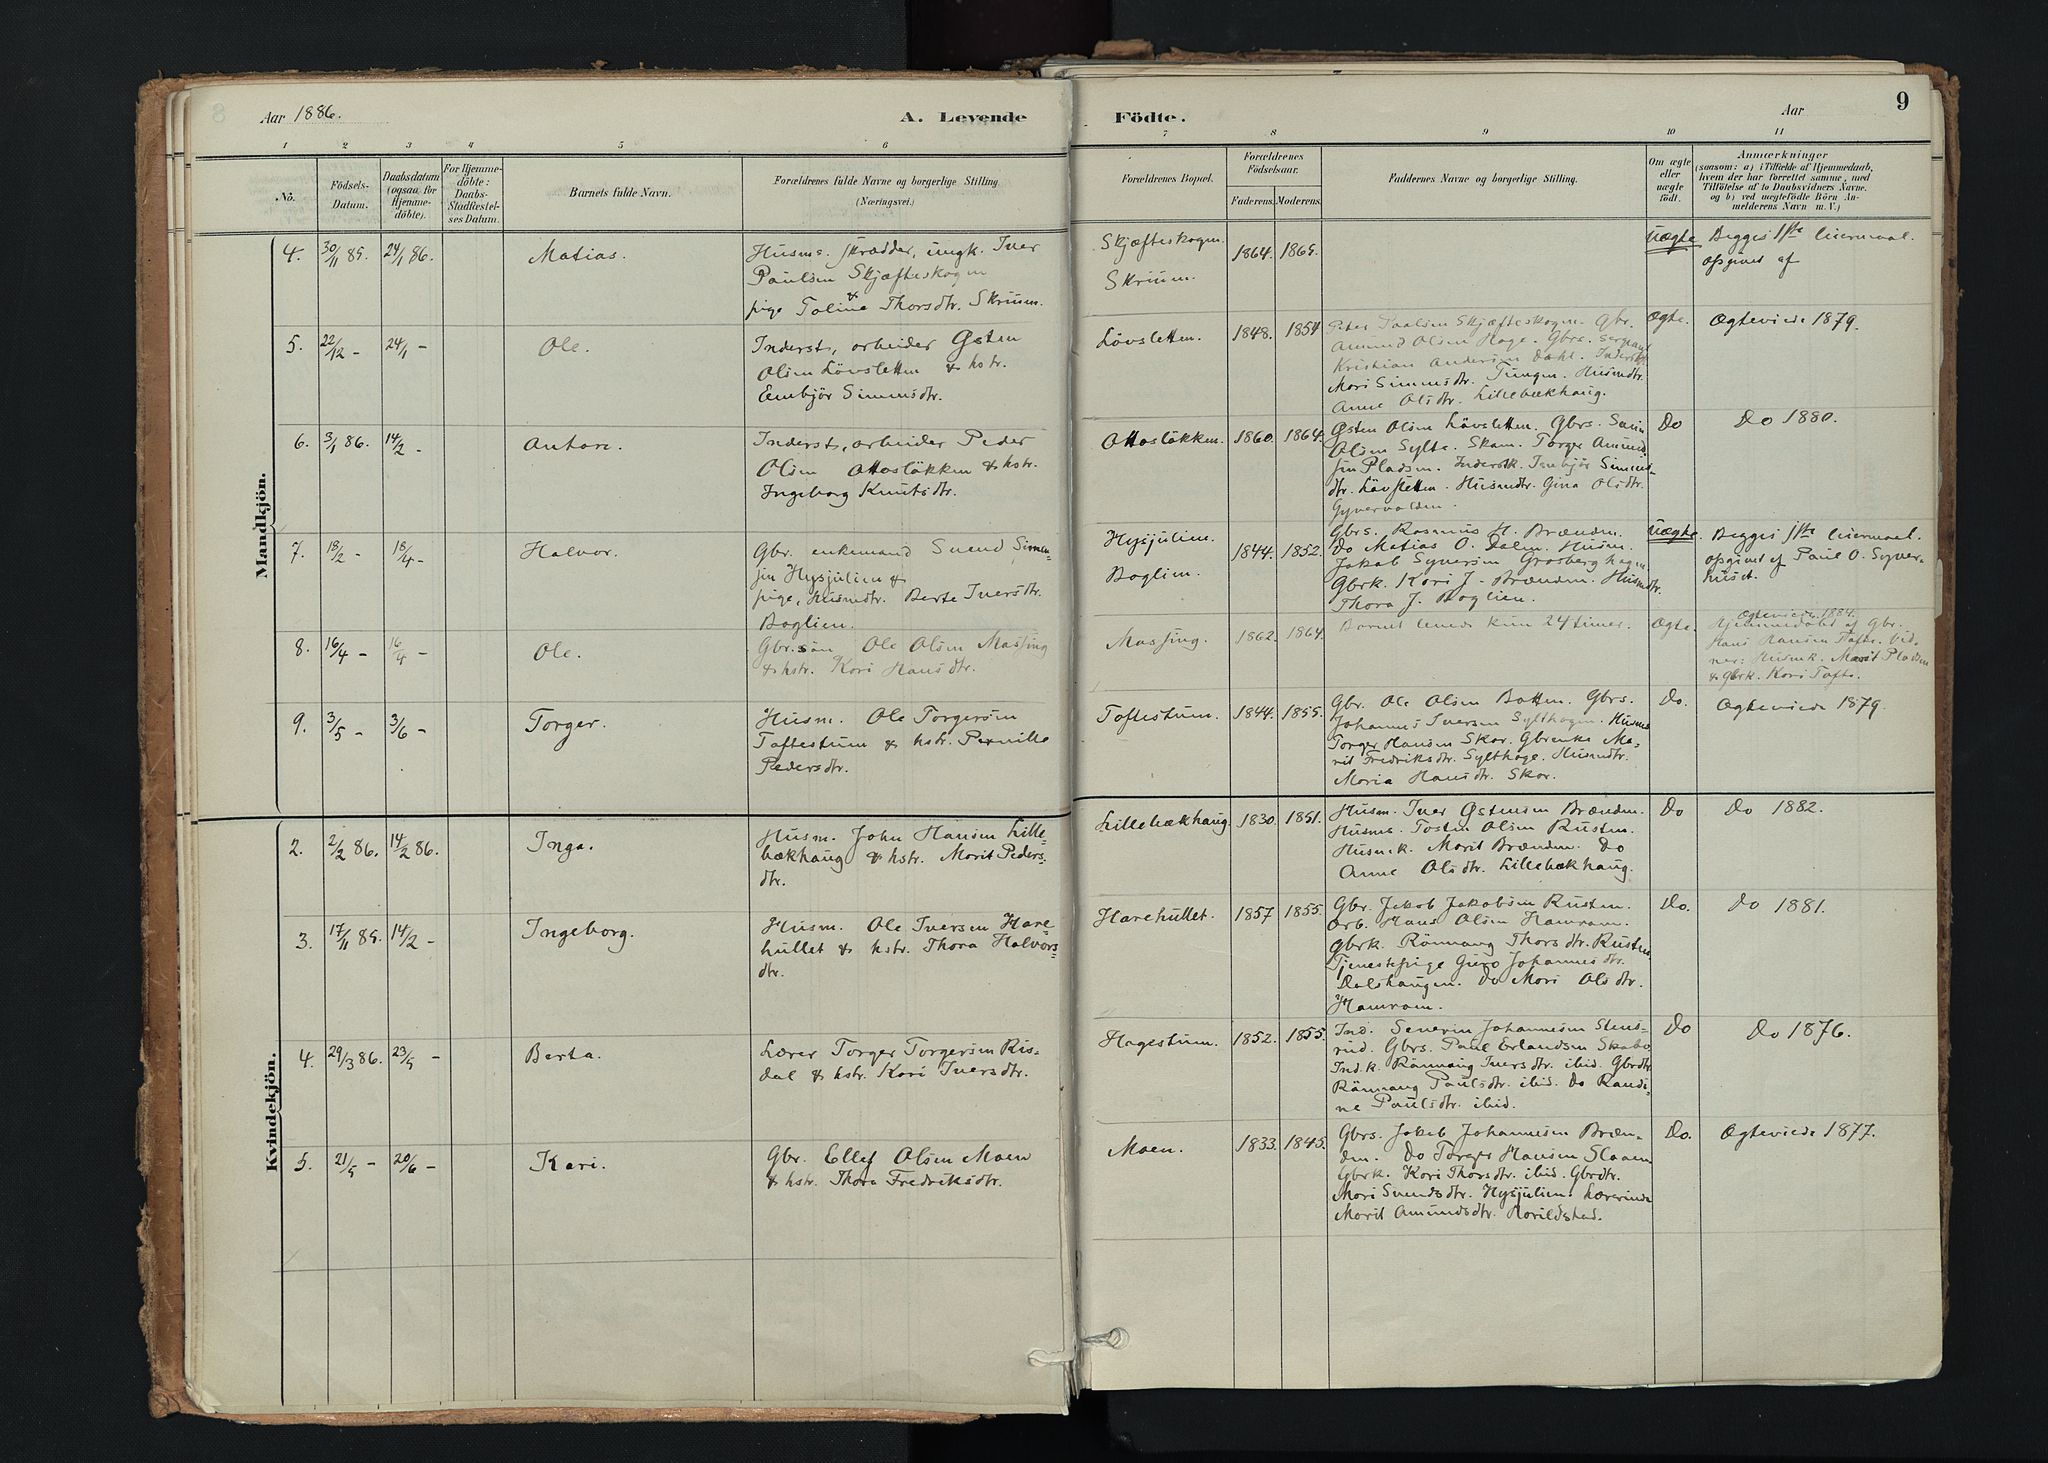 Aar 1886.
A. Levende
Födte.
Aar
9
1 2 3 4 5 6 7 8 9 10 11
No.
Födsels-
Datum.
Daabsdatum
(ogsaa for
Hjemme-
döbte).
For Hjemme-
döbte:
Daabs-
Stadfæstel-
ses Datum.
Barnets fulde Navn.
Forældrenes fulde Navne og borgerlige Stilling
(Næringsvei.)
Forældrenes Bopæl.
Forældrenes
Födselsaar.
Faderens. Moderens.
Faddernes Navne og borgerlige Stilling.
Om ægte
eller
uægte
födt.
Anmærkninger
(saasom: a) i Tilfælde af Hjemmedaab,
hvem der har forrettet samme, med
Tilföielse af to Daabsvidners Navne.
og b) ved uægtefödte Börn An-
melderens Navn m. V.)
Mandkjön.
4. 30/11 85. 24/1 86. Matias.
Husms. skrædder, ungk. Iver
Paulsen Skjæfteskogen
&
pige Toline Thorsdtr. Skrium.
Skjæfteskogen.
Skrium.
1864. 1865.
Uægte
Begges 1ste leiermaal.
opgivet af
5. 22/12 - 24/1 - Ole.
Inderst, arbeider Østen
Olsen Lövsletten & hstr.
Embjör Simensdtr.
Lövsletten. 1848. 1854
Peter Paalsen Skjæfteskogen. Gbr.
Amund Olsen Hage. Gbrs. Sergeant
Kristian Andersen Dahl. Inderstk.
Mari Simensdtr. Tungen. Husmdtr.
Anne Olsdtr. Lillebækhaug.
Ægte. Ægteviede 1879.
6. 3/1 86. 14/2 - Antore.
Inderst, arbeider Peder
Olsen Ottoslökken & hstr.
Ingeborg Knutsdtr.
Ottoslökken. 1860. 1864.
Østen Olsen Lövsletten. Gbrs.
Olsen Sylte. Skom. Torger Amund-
sen Pladsen. Inderstk. Embjör Simens-
dtr. Lövsletten. Husmdtr. Gina Olsdtr.
Do Do 1880.
7. 18/2 - 18/4 - Halvor.
Gbr. enkemand Svend Simen-
sen Hysjulien &
pige, Husmdtr. Berte Iversdtr.
Boglien.
Hysjulien.
Boglien.
1844. 1852.
Gbrs. Rasmus H. Brænden.
Do Matias O. Dalen. Husm.
Jakob Syversen Grosberghagen.
Gbrk. Kari J. Brænden. Husmdtr.
Thora J. Boglien.
Uægte. Begges 1ste leiermaal.
opgivet af Paul O. Syver-
huset.
8. 16/4 - 16/4 - Ole.
Gbr.sön Ole Olsen Massing
& hstr. Kari Hansdtr.
Massing. 1862. 1864.
Barnet levede kun 24 timer.
Ægte.
Ægteviede 1884.
Hjemmedöbt af Gbr.
Hans Hansen Tofte. Vid-
ner: Husmk. Marit Pladsen
& Gbrk. Kari Tofte.
9. 3/5 - 3/6 - Torger.
Husm. Ole Torgersen
Toftestum & hstr. Pernille
Pedersdtr.
Toftestum. 1844. 1855.
Gbr. Ole Olsen Botten. Gbrs.
Johannes Iversen Sylthagen. Husms.
Torger Hansen Skar. Gbrenke Ma-
rit Fredriksdtr. Sylthage. Husmdtr.
Maria Hansdtr. Skar.
Do. Ægteviede 1879.
Kvindekjön.
2. 2/2 86. 14/2 86. Inga.
Husm. John Hansen Lille-
bækhaug & hstr. Marit Peders-
dtr.
Lillebækhaug. 1830. 1851.
Husm. Iver Østensen Brænden.
Husms. Tosten Olsen Rusten.
Husmk. Marit Brænden. Do
Anne Olsdtr. Lillebækhaug.
Do Do 1882.
3. 17/11 85. 14/2 - Ingeborg.
Husm. Ole Iversen Hare-
hullet & hstr. Thora Halvors-
dtr.
Harehullet. 1857 1855.
Gbr. Jakob Jakobsen Rusten.
Arb. Hans Olsen Hamram.
Gbrk. Rönnaug Thorsdtr. Rusten
Tjenestepige Guro Johannesdtr.
Dalshaugen. Do Mari Olsdtr.
Hamram.
Do. Do 1881.
4. 29/3 86. 23/5 - Berta.
Lærer Torger Torgersen Ris-
dal & hstr. Kari Iversdtr.
Hagestum. 1852. 1855.
Ind. Severin Johannesen Stens-
rud. Gbrs. Paul Erlandsen Skabo,
Ind.k. Rönnaug Iversdtr. ibid. Gbrdtr.
Rönnaug Paulsdtr. ibid. Do Randi-
ne Paulsdtr. ibid.
Do Do 1876.
5. 21/5 - 20/6 - Kari.
Gbr. Ellef Olsen Moen
& hstr. Thora Fredriksdtr.
Moen. 1833. 1845.
Gbrs. Jakob Johannesen Bræn-
den. Do Torger Hansen Slaaen
Gbrk. Kari Thorsdtr. ibid. Gbrdtr.
Mari Svendsdtr. Hysjulien. Lærerinde
Marit Amundsdtr. Harildstad.
Do. Ægteviede 1877.